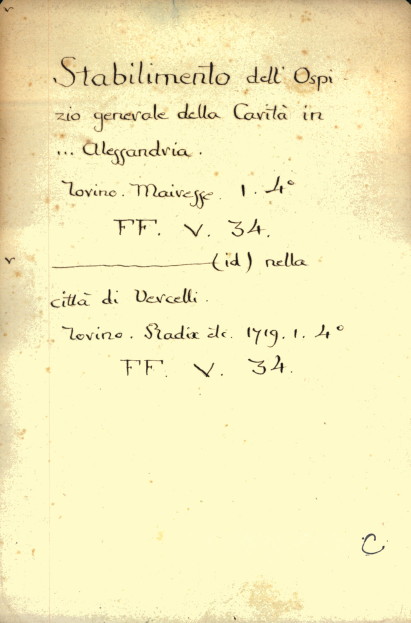 Stabilimento dell' Ospi-
zio generale della Carità in
... Alessandria.
Torino. Mairesse. 1. 4°
FF. V. 34.
(id) nella
città di Vercelli.
Torino. Radix 1719. 1. 4°
FF. V. 34.
C